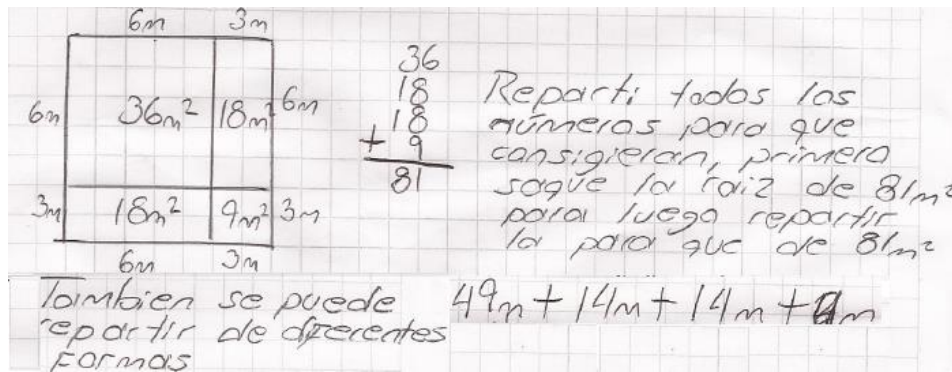 6m 3m
6m 36m² 18m² 6m
3m 18m² 9m² 3m
6m 3m
36
18
18
+ 9
81
Reparti todos los
números para que
consigieran, primero
saque la raiz de 81m²
para luego repartir
la para que de 81m²
Tambien se puede
repartir de diferentes
formas
49m + 14m + 14m + 4m